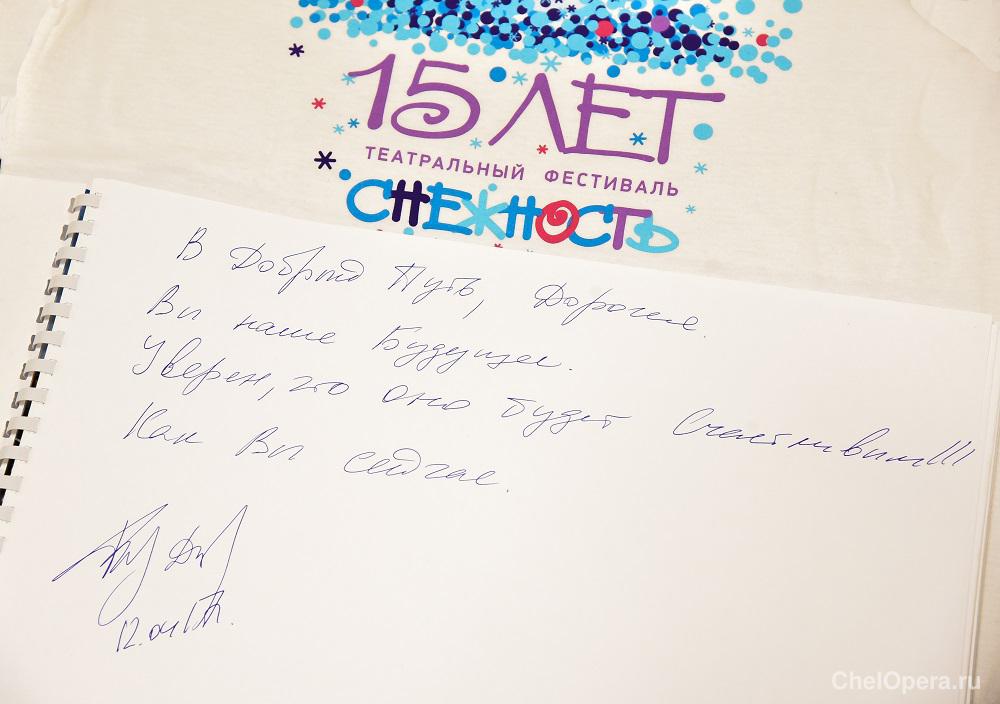 15 ЛЕТ
ТЕАТРАЛЬНЫЙ ФЕСТИВАЛЬ
СНЕЖНОСТЬ
В Добрый Путь, Дорогие.
Вы наше Будущее.
Уверен, что оно будет Счастливым!!!
Как Вы сейчас.
ChelOpera.ru